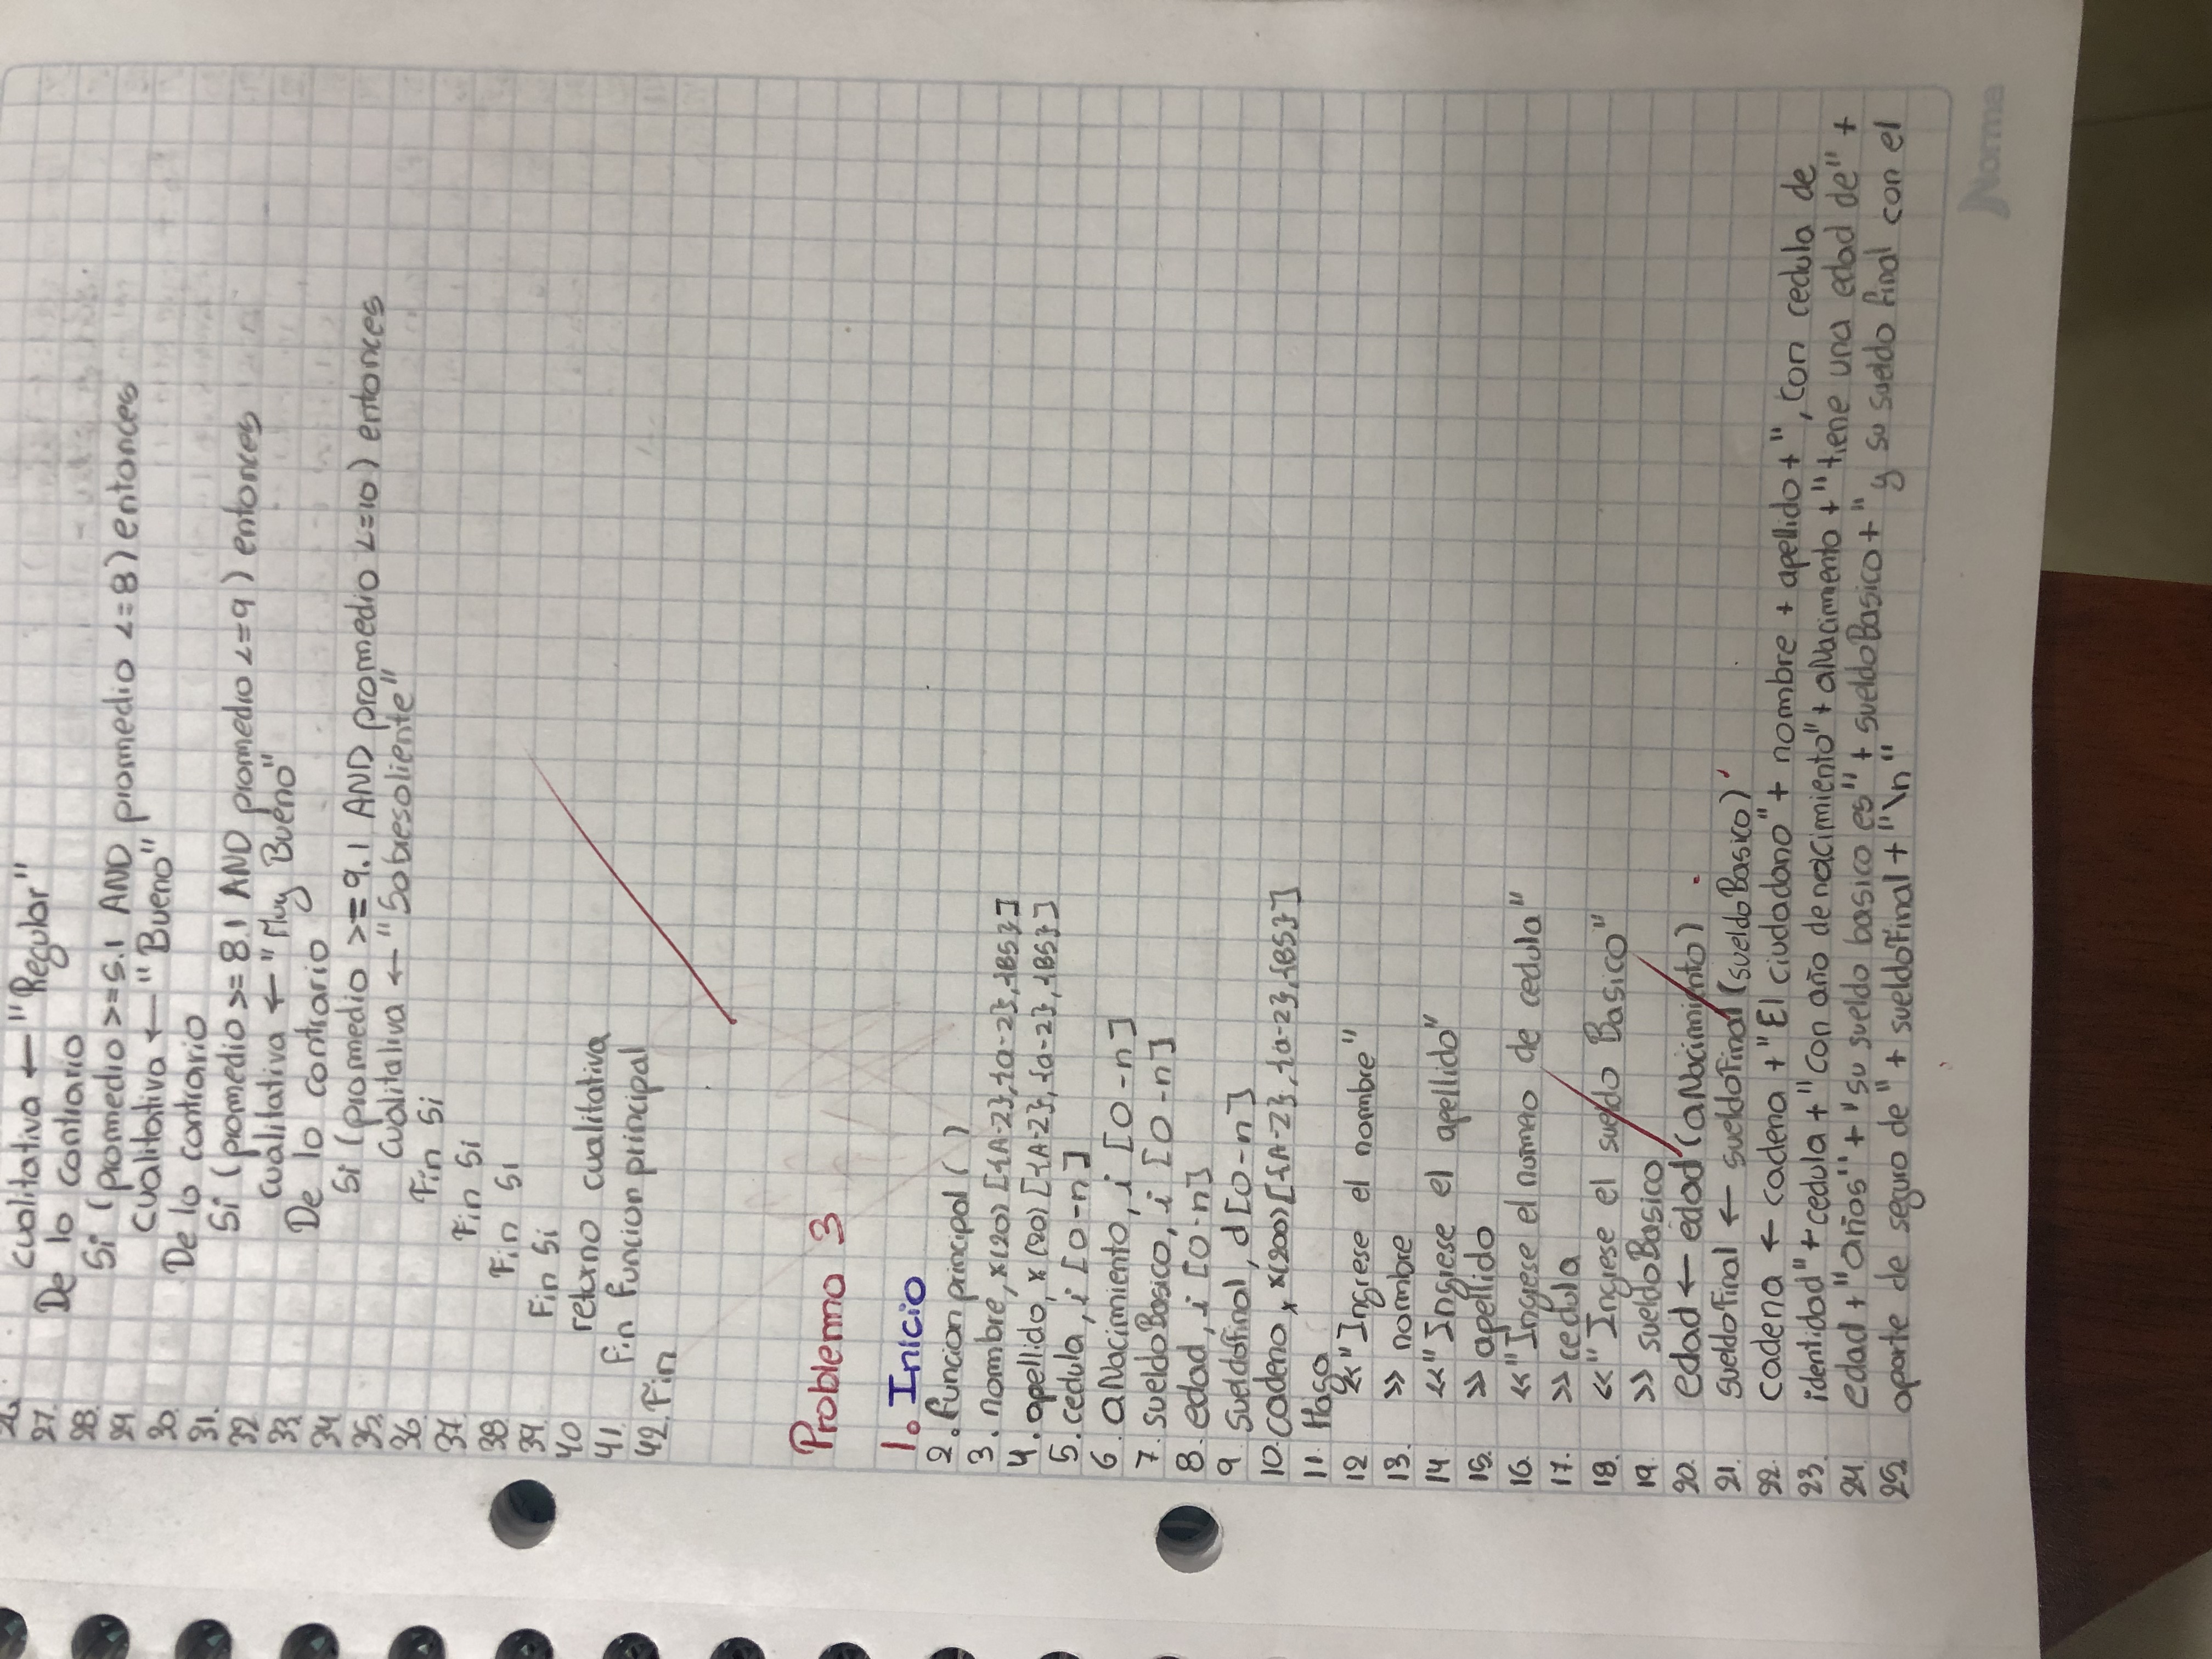 26. cualitativa ← "Regular"
27. De lo contrario
28. Si (prommedio >=5.1 AND prommedio <=8) entonces
29 cualitativa ← "Bueno"
30. De lo contrario
31. Si (prommedio >= 8.1 AND prommedio <=9) entonces
32 cualitativa ← "Muy Bueno"
33. De lo contrario
34 Si (prommedio >=9.1 AND prommedio <=10) entonces
35. cualitativa ← "Sobresaliente"
36 Fin Si
37. Fin Si
38. Fin Si
39. Fin Si
40 retorno cualitativa
41. fin funcion principal
42. Fin
Problema 3
1. Inicio
2. funcion principal ( )
3. nombre, x(20) [{A-Z},{a-z},{BS}]
4. apellido, x (20) [{A-Z},{a-z},{BS}]
5. cedula, i [0-n]
6. aNacimiento, i [0-n]
7. sueldoBasico, i [0-n]
8. edad, i [0-n]
9 sueldoFinal, d[0-n]
10. cadena, x(200) [{A-Z},{a-z},{BS}]
11. Haga
12 <<"Ingrese el nombre"
13. >> nombre
14 <<"Ingrese el apellido"
15. >> apellido
16. <<"Ingrese el numero de cedula"
17. >> cedula
18. <<"Ingrese el sueldo Basico"
19. >> sueldoBasico
20. edad ← edad (aNacimiento)
21. sueldoFinal ← sueldoFinal (sueldoBasico)
22. cadena ← cadena + "El ciudadano" + nombre + apellido + ", con cedula de
23. identidad" + cedula + "con año de nacimiento" + aNacimiento + "tiene una edad de" +
24. edad + "años" + "su sueldo basico es" + sueldoBasico + "y su sueldo final con el
25. aporte de seguro de" + sueldoFinal + "\n"
Norma